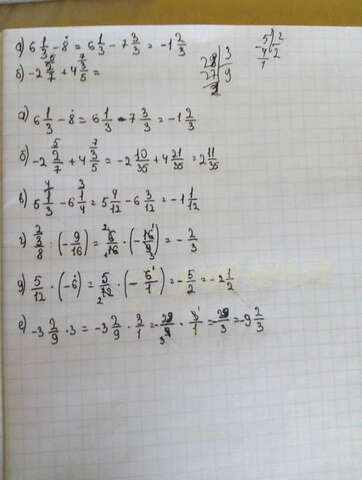 а) 6 1/3 - 8 = 6 1/3 - 7 3/3 = -1 2/3
б) -2 2/7 + 4 3/5 =
28 | 3
27 | 9
5 | 2
4 | 2
1
а) 6 1/3 - 8 = 6 1/3 - 7 3/3 = -1 2/3
б) -2 2/7 + 4 3/5 = -2 10/35 + 4 21/35 = 2 11/35
в) 5 1/3 - 6 1/4 = 5 4/12 - 6 3/12 = -1 1/12
: (-9/16) =
= -2/3
д) 5/12 · (-6) = 5/12 · (-6/1) = -5/2 = -2 1/2
е) -3 2/9 · 3 = -3 2/9 · 3/1 = -29/9 · 3/1 = -29/3 = -9 2/3